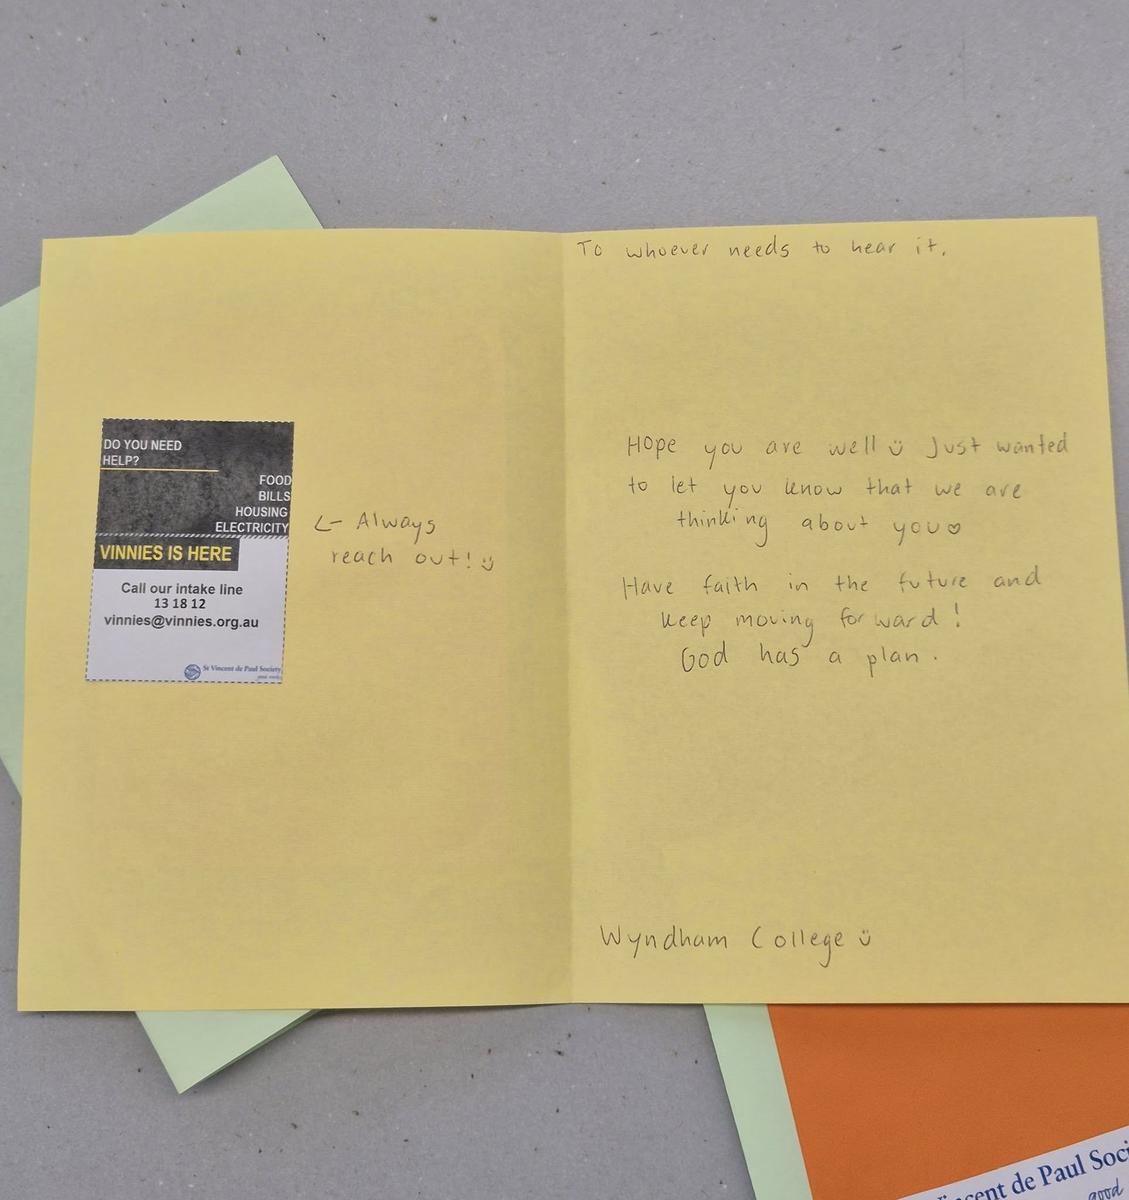 DO YOU NEED
HELP?
FOOD
BILLS
HOUSING
ELECTRICITY
VINNIES IS HERE
Call our intake line
13 18 12
vinnies@vinnies.org.au
St Vincent de Paul Society
<- Always
reach out! :)
To whoever needs to hear it,
Hope you are well :) Just wanted
to let you know that we are
thinking about you ♡
Have faith in the future and
keep moving forward!
God has a plan.
Wyndham College :)
Vincent de Paul Soci
good